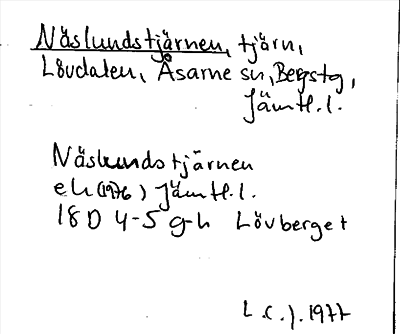 Näslundstjärnen, tjärn,
Lövdalen, Åsarne sn, Bergstg,
Jämtl.l.
Näslundstjärnen
ek (1976) Jämtl.l.
18 D 4-5 g-h Lövberget
L.C.J. 1977